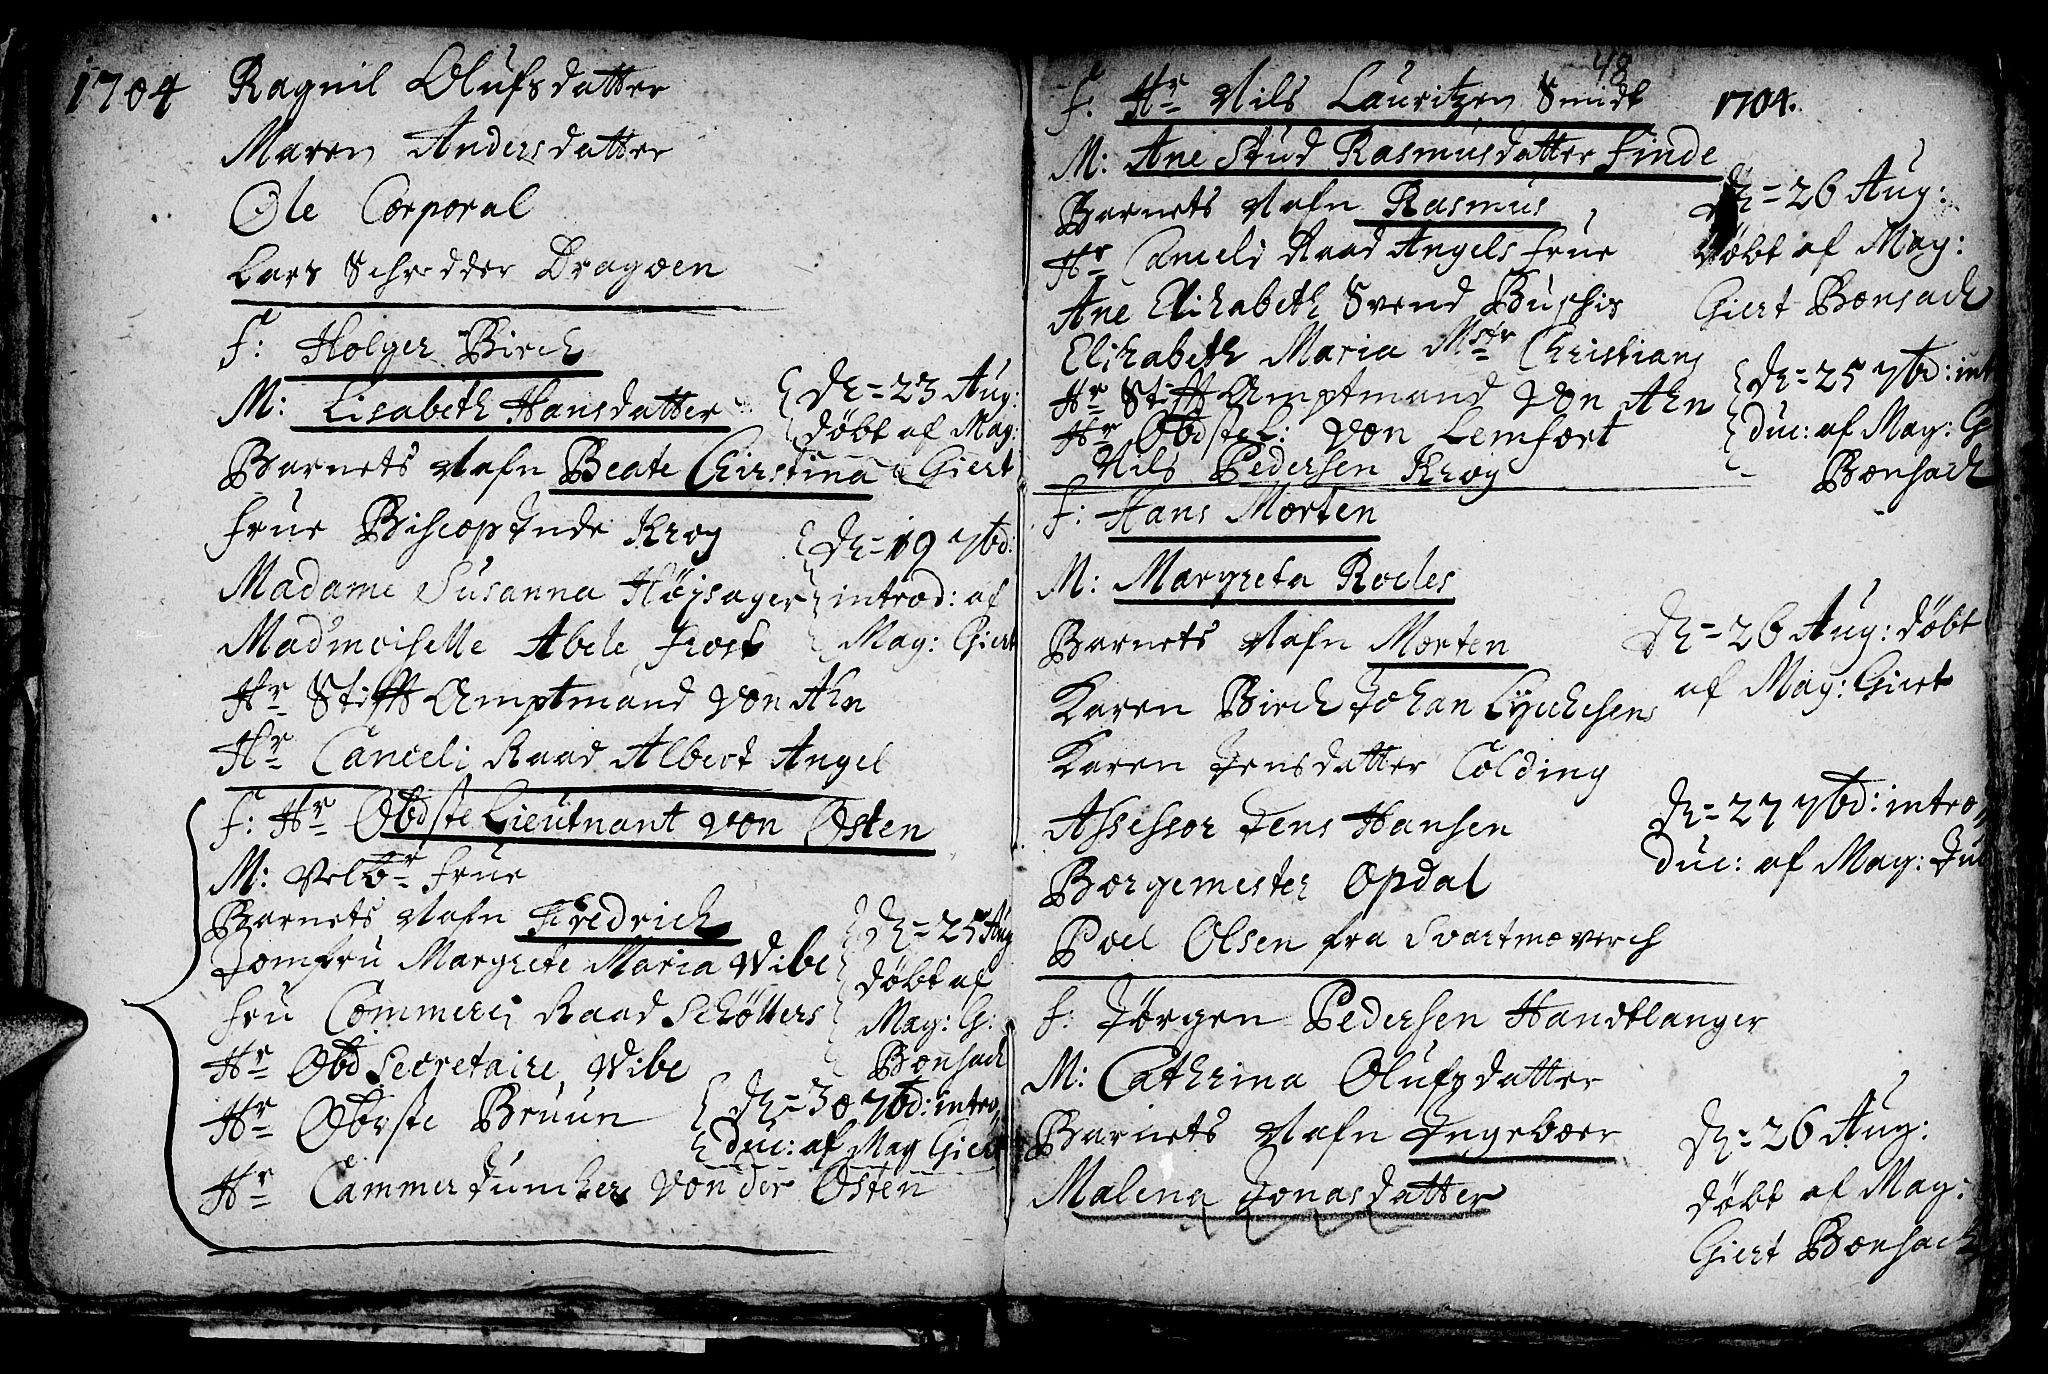 1704
Ragnil Olufsdatter
Maren Andersdatter
Ole Corporal
Lars Schredder Dragoen
F: Holger Birch
M: Lisabeth Hansdatter
Barnets Nafn Beate Christina
Frue Biscopinde Krog
Madame Susanna Höysager
Mad'moiselle Abele Frost
Hr Stifft Amptmand Von Ahn
Hr Canceli Raad Albert Angel
D: 23 Aug:
döbt af Mag:
Giert
D: 19 7bd:
introd: af
Mag: Giert
F: Hr Obdste Lieutnant Von Osten
M: Velbr Frue
Barnets Nafn Fredrich
Jomfru Margrete Maria Wibe
Fru Commerci Raad Schöllers
Hr Obd Secretaire Wibe
Hr Oberste Bruun
Hr Cammer Juncher Von der Osten
D: 25 Aug
döbt af
Mag: G:
Bonsach
D: 30 7bd: intro
duc: af Mag Giert
48
1704.
F: Hr Nils Lauritzen Smidt
M: Ane Stud Rasmusdatter Finde
Barnets Nafn Rasmus
Hr Canceli Raad Angels Frue
Ane Elizabeth Svend Buschis
Elizabeth Maria Mstr Christians
Hr Stifft Amptmand Von Ahn
Hr Obdste L: Von Lemfort
Nils Pedersen Krog
D: 26 Aug:
döbt af Mag:
Giert Bonsach
D: 25 7bd: int
duc: af Mag: G
Bonsach
F: Hans Morten
M: Margreta Rocles
Barnets Nafn Morten
Karen Birch Johan Lychesens
Karen Jensdatter Colding
Assessor Jens Hansen
Borgemester Opdal
Poel Olsen fra Svartmoverch
D: 26 Aug: döbt
af Mag: Giert
D: 27 7bd: intro
duc: af Mag: Jue
F: Jörgen Pedersen Handtlanger
M: Cathrina Olufsdatter
Barnets Nafn Ingeboer
Malena Jonasdatter
D: 26 Aug:
döbt af Mag:
Giert Bonsach